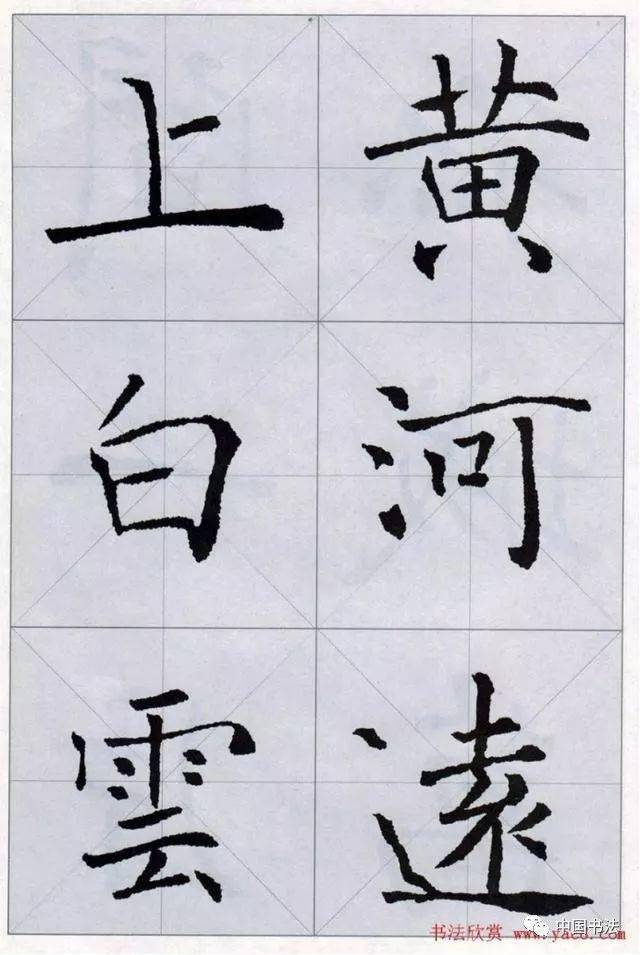 黄河遠
上白雲
书法欣赏 www.yac8.com
中国书法